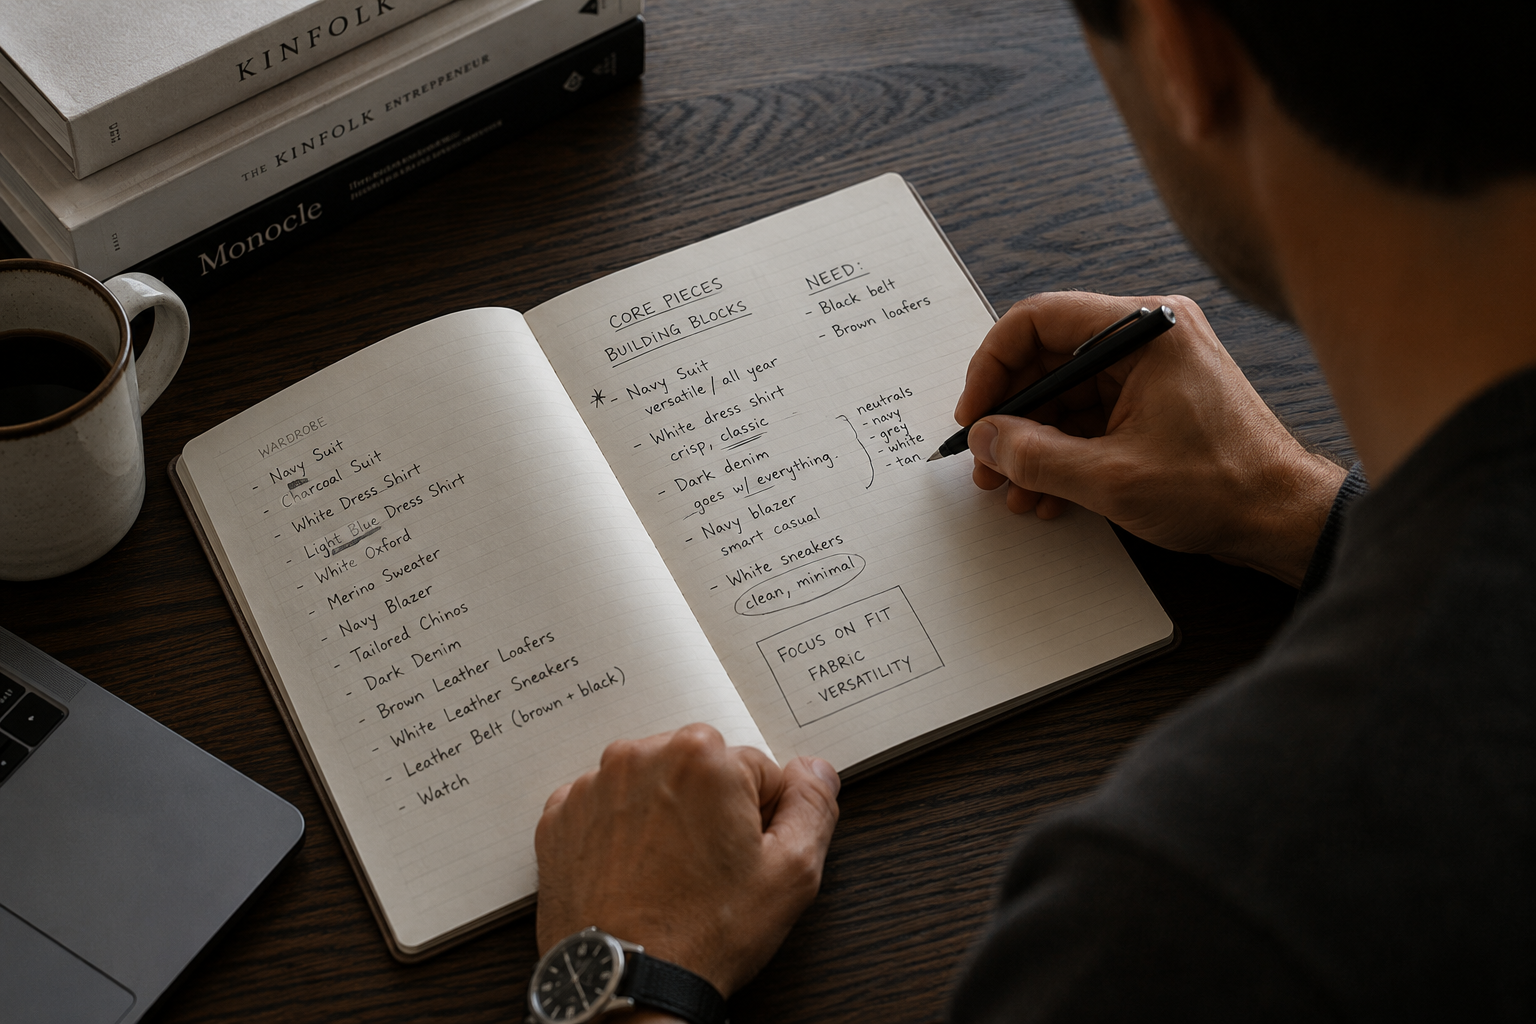 KINFOLK
THE KINFOLK ENTREPPENEUR
Monocle
WARDROBE
- Navy Suit
- Charcoal Suit
- White Dress Shirt
- Light Blue Dress Shirt
- White Oxford
- Merino Sweater
- Navy Blazer
- Tailored Chinos
- Dark Denim
- Brown Leather Loafers
- White Leather Sneakers
- Leather Belt (brown + black)
- Watch
CORE PIECES
BUILDING BLOCKS
* - Navy Suit
versatile / all year
- White dress shirt
crisp, classic
- Dark denim
goes w/ everything.
- Navy blazer
smart casual
- White sneakers
clean, minimal
FOCUS ON FIT
FABRIC
- VERSATILITY
NEED:
- Black belt
- Brown loafers
neutrals
- navy
- grey
- white
- tan